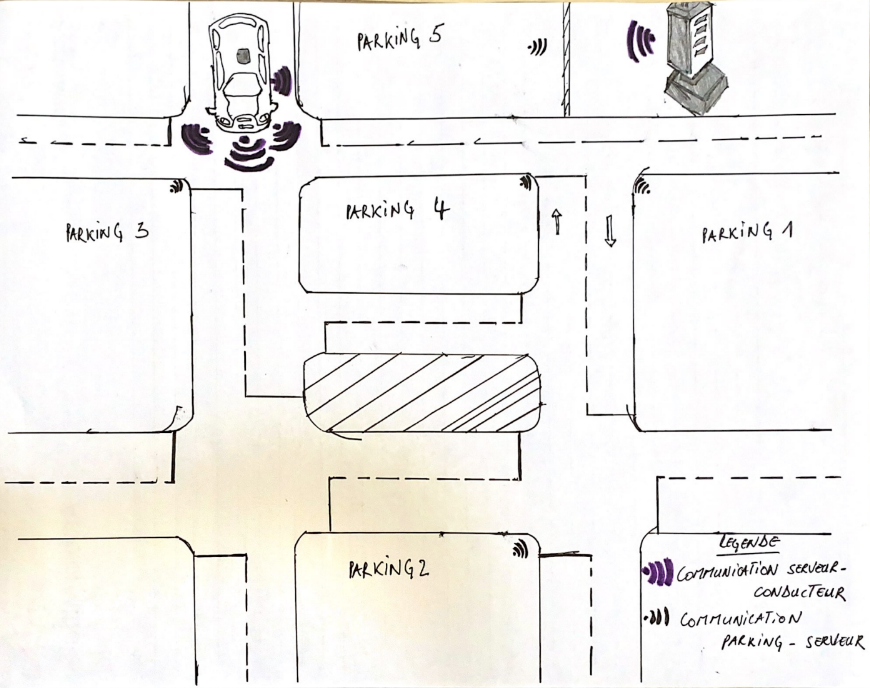 PARKING 5
PARKING 3
PARKING 4
PARKING 1
PARKING 2
LEGENDE
COMMUNICATION SERVEUR-
CONDUCTEUR
COMMUNICATION
PARKING - SERVEUR